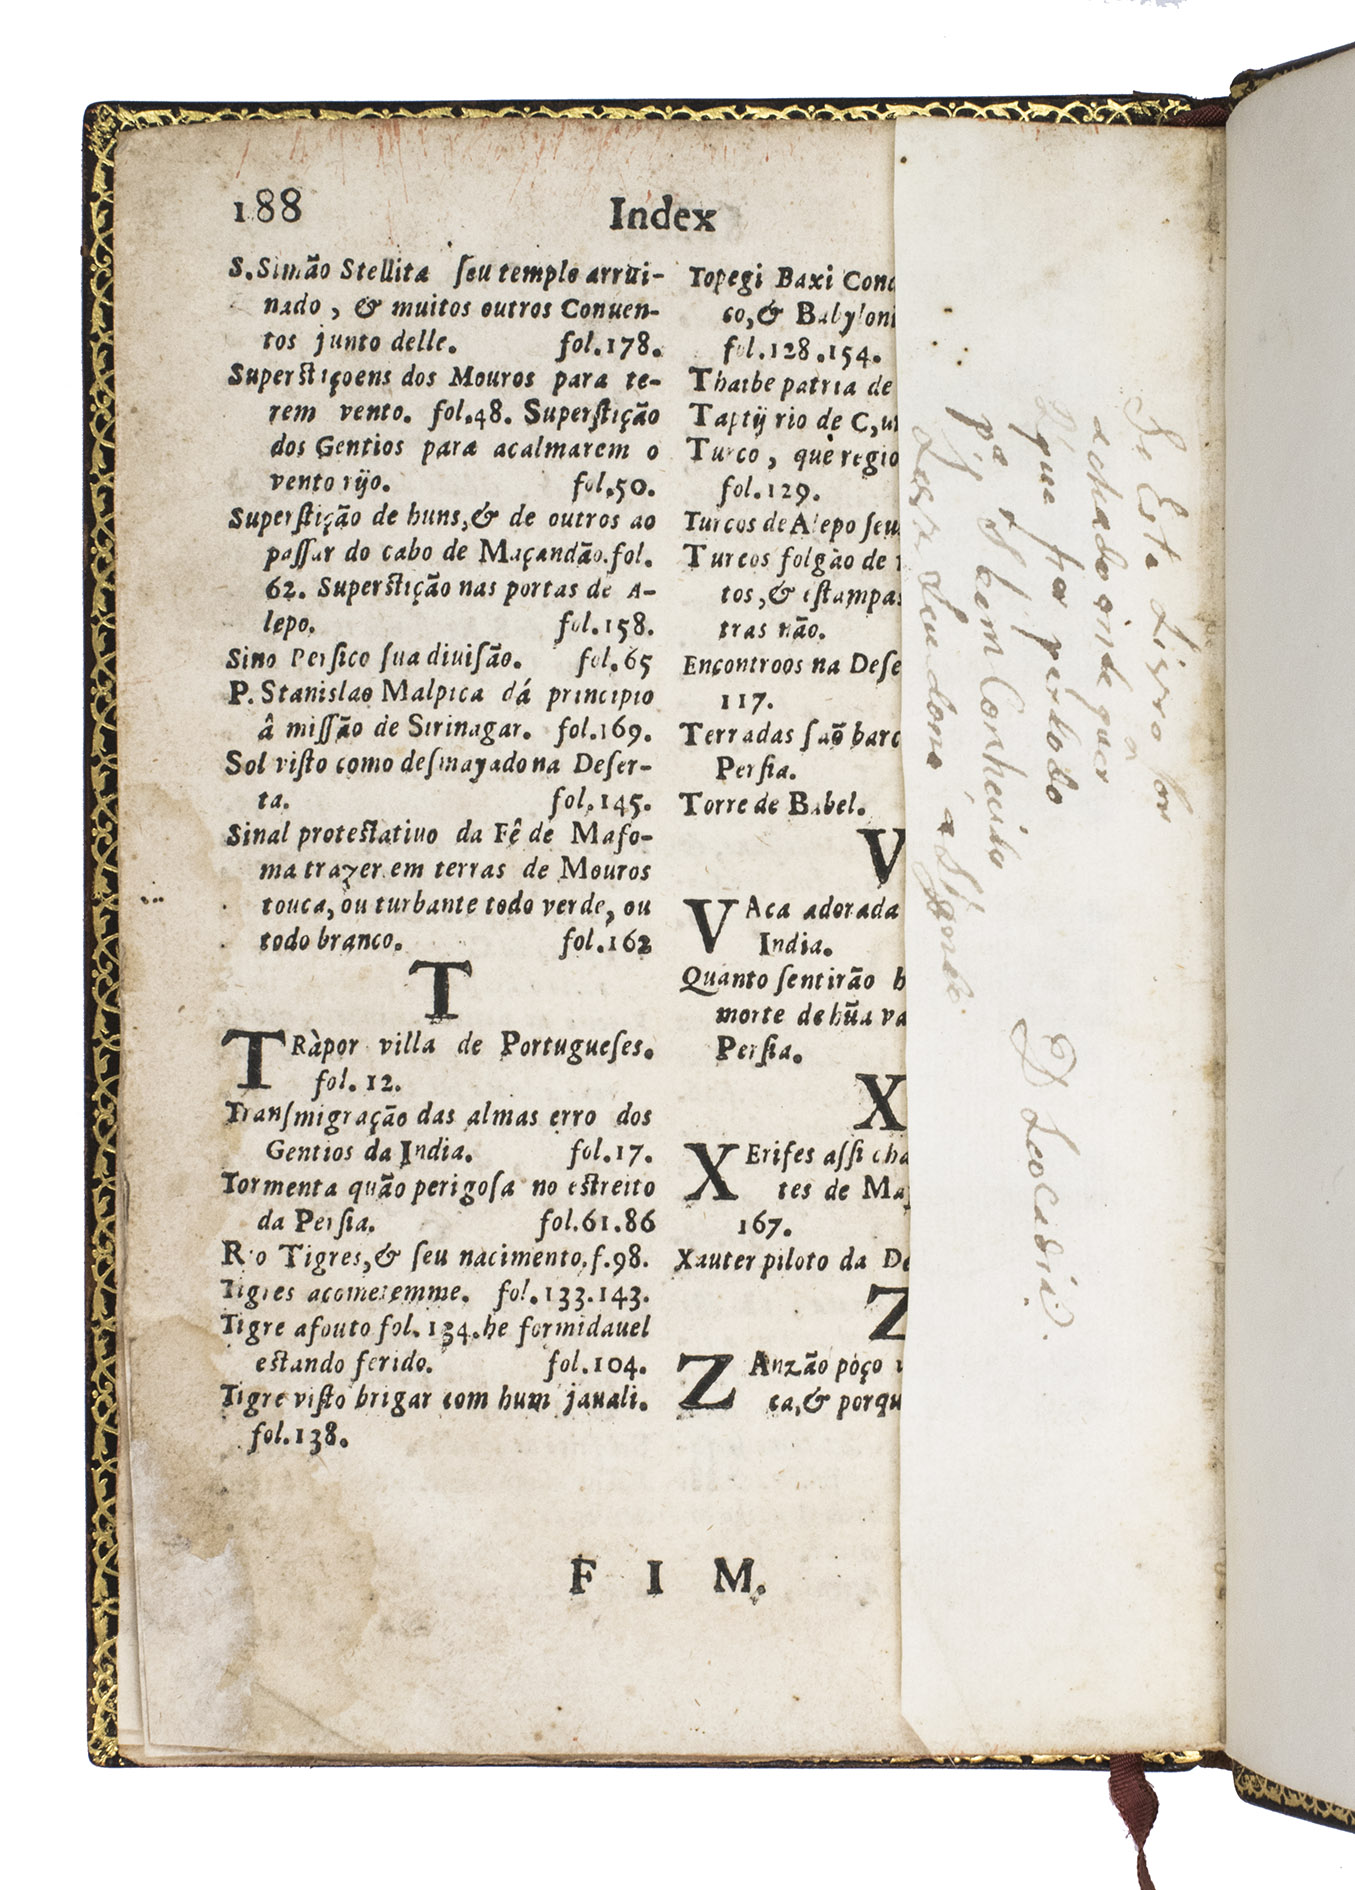 188
Index
S. Simão Stellita ſeu templo arrui-
nado, & muitos outros Conuen-
tos junto delle. fol. 178.
Superstiçoens dos Mouros para te-
rem vento. fol. 48. Superſtição
dos Gentios para acalmarem o
vento rijo. fol. 50.
Superſtição de huns, & de outros ao
paſſar do cabo de Maçandão. fol.
62. Superstição nas portas de A-
lepo. fol. 158.
Sino Perſico ſua diuiſão. fol. 65
P. Stanislao Malpica dá principio
â miſſão de Sirinagar. fol. 169.
Sol viſto como deſmayado na Deſer-
ta. fol. 145.
Sinal protestatiuo da Fê de Mafo-
ma trazer em terras de Mouros
touca, ou turbante todo verde, ou
todo branco. fol. 162
T
TRàpor villa de Portugueſes.
fol. 12.
Tranſmigração das almas erro dos
Gentios da India. fol. 17.
Tormenta quão perigoſa no estreito
da Perſia. fol. 61. 86
Rio Tigres, & ſeu nacimento. f. 98.
Tigres acometemme. fol. 133. 143.
Tigre afouto fol. 134. he formidauel
estando ferido. fol. 104.
Tigre viſto brigar com hum jauali.
fol. 138.
Topegi Baxi Con
co, & Babyloni
fol. 128. 154.
Thaibe patria de
Taptij rio de C, u
Turco, que regio
fol. 129.
Turcos de Alepo ſeu
Turcos folgão de
tos, & eſtampas
tras não.
Encontroos na Deſe
117.
Terradas ſaõ barc
Perſia.
Torre de Babel.
V
VAca adorada
India.
Quanto ſentirão h
morte de hũa va
Perſia.
X
XErifes aſſi cha
tes de Ma
167.
Xauter piloto da De
Z
ZAnzão poço
ca, & porqu
F I M.
Se Este Livro for
achado onde quer
que for perdido
pa q͂ S bem Conhecido
Seu dono aſigoneſe
D Leocadia.